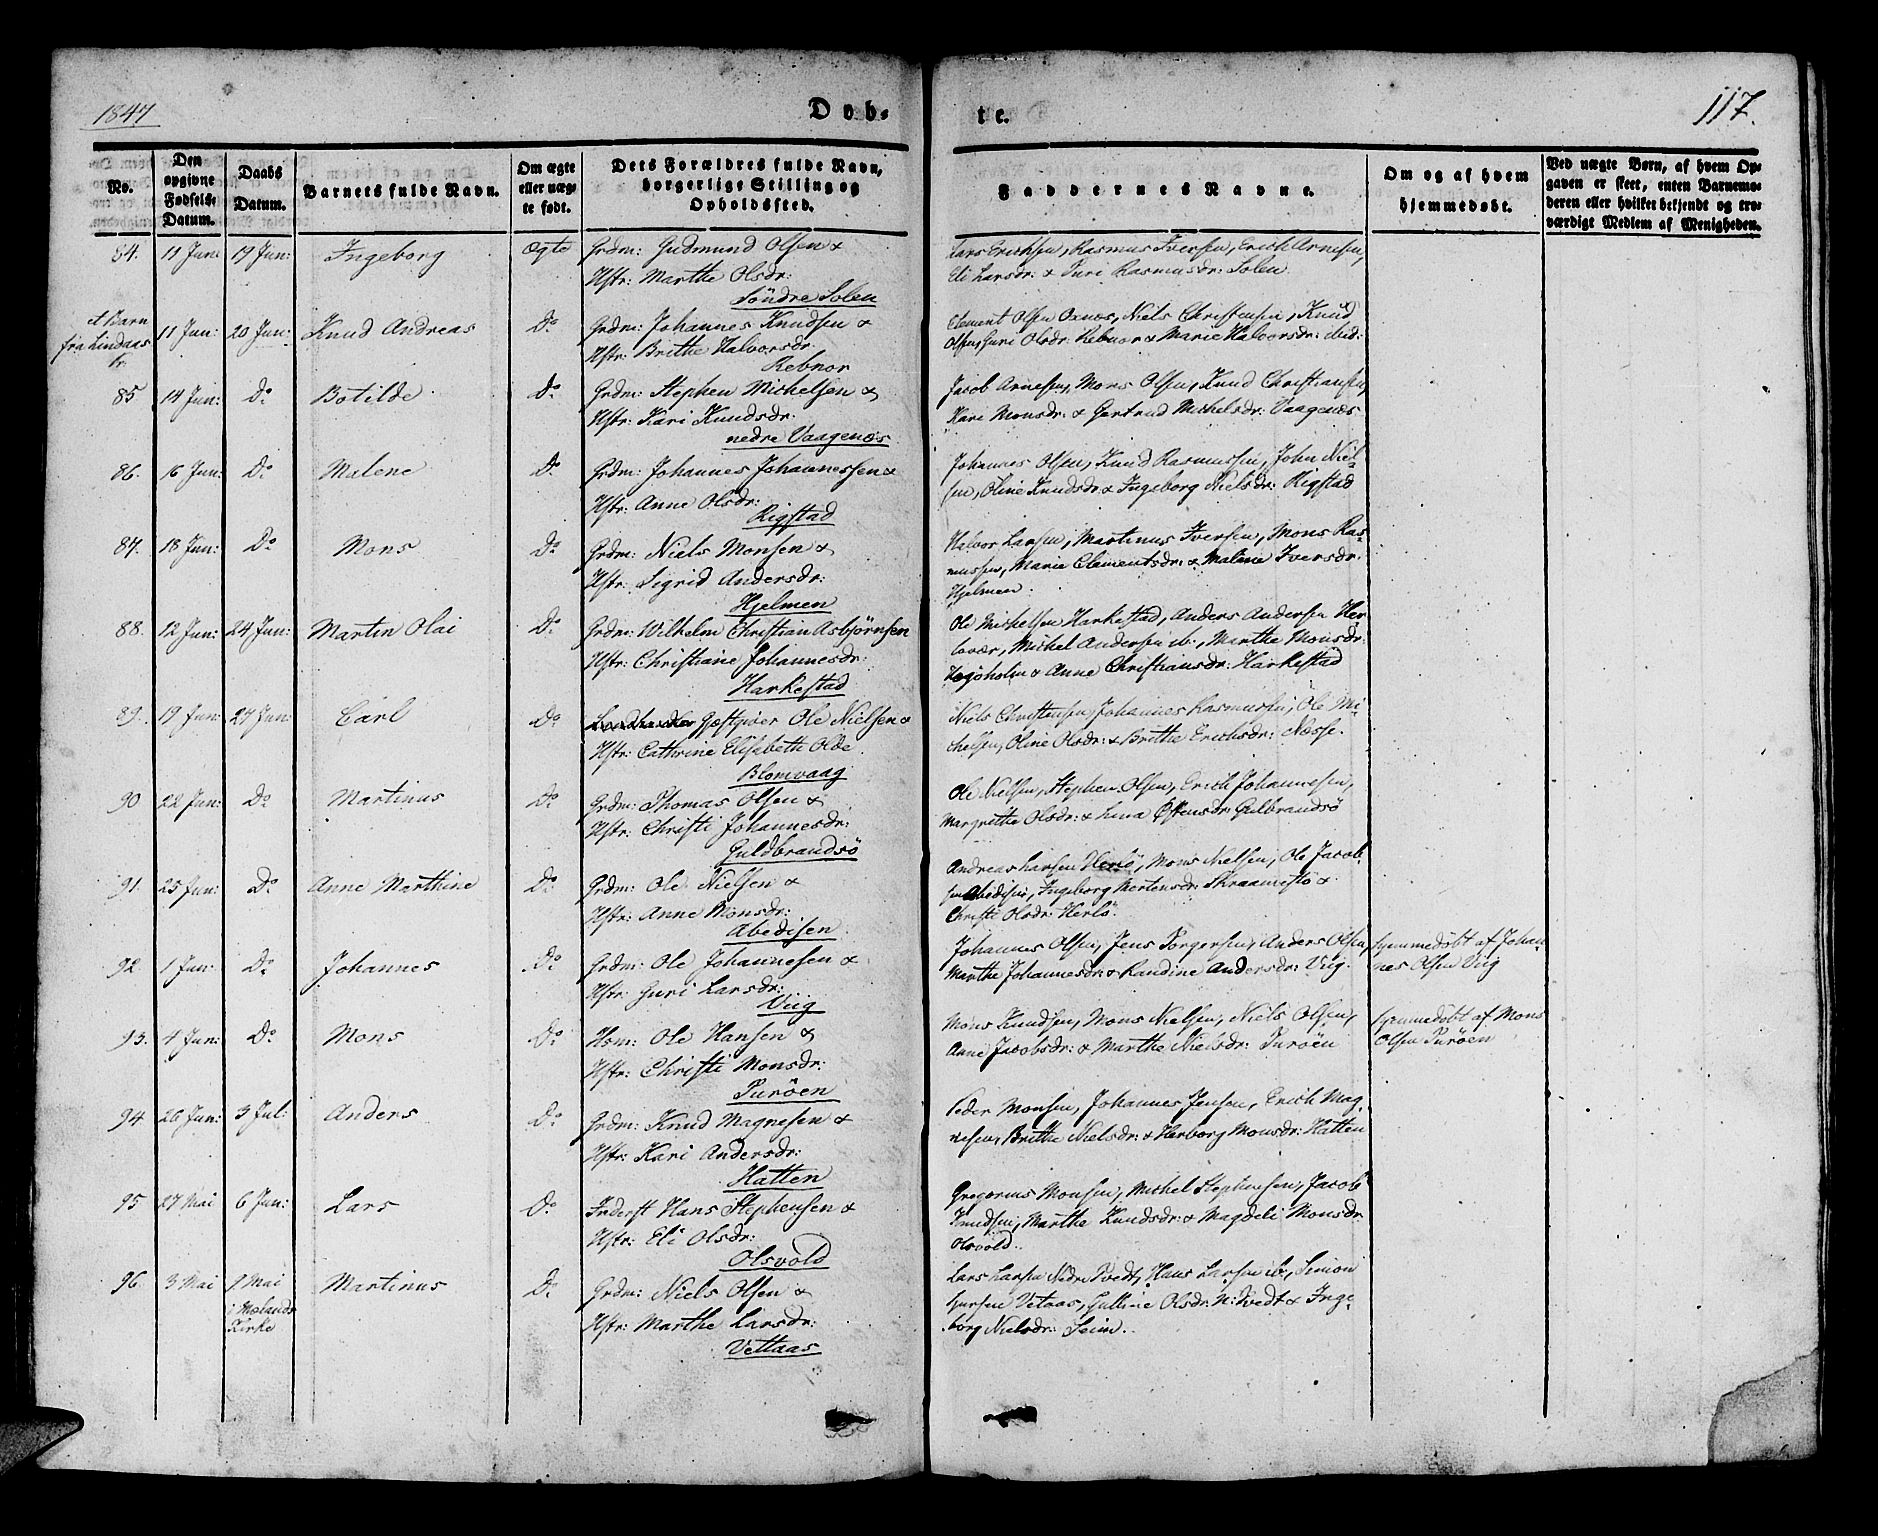 1847
Døb-
te.
117.
No.
Den opgivne Fødsels-Datum.
Daabs Datum.
Barnets fulde Navn.
Om ægte eller uægte født.
Dets Forældres fulde Navn, borgerlige Stilling og Opholdssted.
Faddernes Navne.
Om og af hvem hjemmedøbt.
Ved uægte Børn, af hvem Opgaven er skeet, enten Barnemoderen eller hvilket bekjendt og troværdigt Medlem af Menigheden.
84. 11 Jun: 19 Jun: Ingeborg ægte Grdm: Gudmund Olsen &
Hstr: Marthe Olsdr:
Söndre Solen
Lars Erichsen, Rasmus Iversen, Erich Arnesen,
Eli Larsdr: & Turi Rasmusdr: Solen
et Barn
fra Lindaas
11 Jun: 20 Jun: Knud Andreas Do Grdm: Johannes Knudsen &
Hstr: Brithe Halvorsdr:
Rebnor
Clement Olsen Oxnæs, Niels Christensen, Knud
Olsen, Guri Olsdr: Rebnor & Marie Halvorsdr: ibid:
85 14 Jun: Do Botilde Do Grdm: Stephen Michelsen &
Hstr: Kari Knudsdr:
nedre Vaagenæs
Jacob Arnesen, Mons Olsen, Knud Christiansen,
Kari Monsdr: & Gertrud Michelsdr: Vaagenæs
86. 16 Jun: Do Malene Do Grdm: Johannes Johannessen &
Hstr: Anne Olsdr:
Rigstad
Johannes Olsen, Knud Rasmussen, John Niel-
sen, Oline Knudsdr: & Ingeborg Nielsdr: Rigstad
87. 18 Jun: Do Mons Do Grdm: Niels Monsen &
Hstr: Sigrid Andersdr:
Hjelmen
Halvor Larsen, Martinus Iversen, Mons Ras-
mussen, Marie Clementsdr: & Malene Iversdr:
Hjelmen.
88. 12 Jun: 24 Jun: Martin Olai Do Grdm: Wilhelm Christian Asbjörnsen
Hstr: Christiane Johannesdr:
Harkestad
Ole Michelsen Harkestad, Anders Andersen Her-
lovær, Michel Andersen ib., Marthe Monsdr:
& Anne Christiansdr: Harkestad
89. 19 Jun: 27 Jun: Carl Do Gjæstgiver Ole Nielsen &
Hstr: Cathrine Elisabeth Olde.
Blomvaag
Niels Christensen, Johannes Rasmusen, Ole Mi-
chelsen, Oline Olsdr: & Brithe Erichsdr: Næsse.
90 22 Jun: Do Martinus Do Grdm: Thomas Olsen &
Hstr: Christi Johannesdr:
Guldbrandsö
Ole Nielsen, Stephen Olsen, Erich Johannesen,
Margrethe Olsdr: & Lina Östensdr: Gulbrandsö
91. 25 Jun: Do Anne Marthine Do Grdm: Ole Nielsen &
Hstr: Anne Monsdr:
Abedisen
Andreas Larsen Herlö, Mons Nielsen, Ole Jacob-
sen Abedisen, Ingeborg Mortensdr: &
Christi Olsdr: Herlö.
92 1 Jun: Do Johannes Do Grdm: Ole Johannesen &
Hstr: Guri Larsdr:
Viig
Johannes Olsen, Jens Torgersen, Anders Olsen,
Marthe Johannesdr: & Randine Andersdr: Viig.
hjemmedöbt af Johan-
nes Olsen Viig
93. 4 Jun: Do Mons Do Hsm: Ole Hansen &
Hstr: Christi Monsdr:
Turöen
Mons Knudsen, Mons Nielsen, Niels Olsen,
Anne Jacobsdr: & Marthe Nielsdr: Turöen
hjemmedöbt af Mons
Olsen Turöen
94 26 Jun: 3 Jul: Anders Do Grdm: Knud Magnesen &
Hstr: Kari Andersdr:
Hatten
Peder Monsen, Johannes Jensen, Erich Mag-
nesen, Brithe Nielsdr: & Herborg Monsdr: Hatten
95 27 Mai 6 Jun: Lars Do Inderst Hans Stephensen &
Hstr: Eli Olsdr:
Olsvold
Gregorius Monsen, Michel Stephensen, Jacob
Knudsen, Marthe Knudsdr: & Magdeli Monsdr
Olsvold.
96. 3 Mai 9 Mai Martinus Do Grdm: Niels Olsen &
i Mælands
Kirke
Hstr: Marthe Larsdr:
Vettaas
Lars Larsen Nedre Tvedt, Hans Larsen ib, Simon
Vetaas, Olsdr: N: Tvedt & Inge-
borg Nielsdr: Seim.